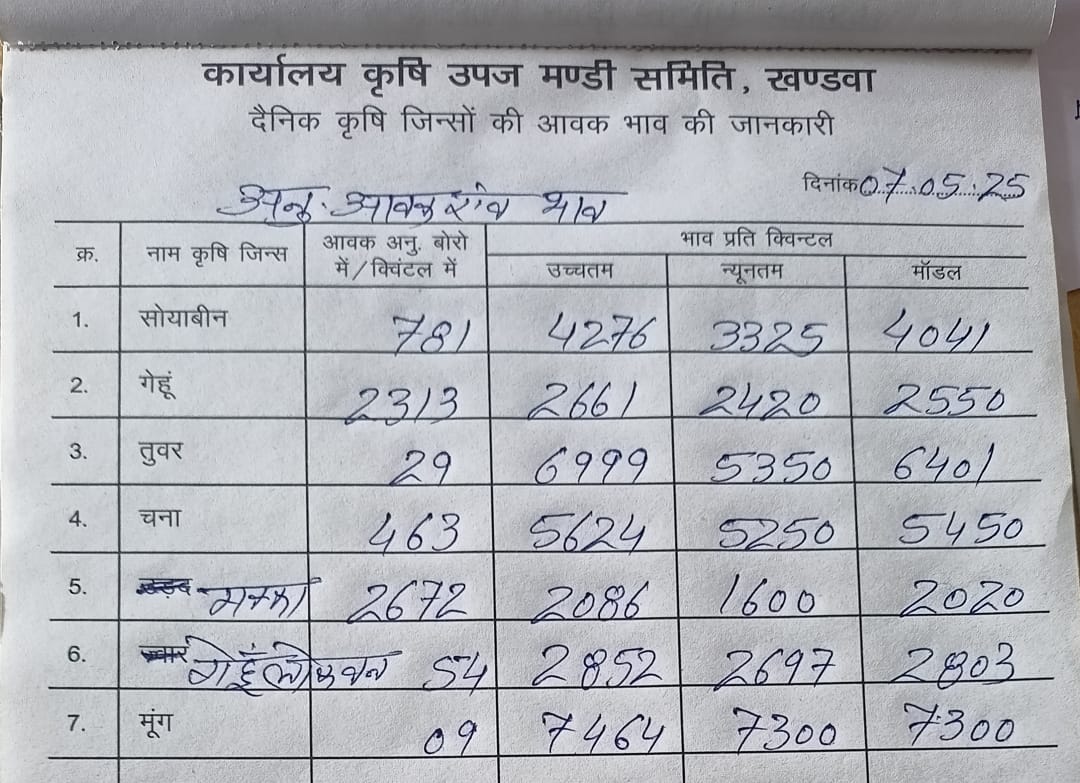 कार्यालय कृषि उपज मण्डी समिति, खण्डवा
दैनिक कृषि जिन्सों की आवक भाव की जानकारी
दिनांक 07.05.25
अनु. आवक एंव भाव
क्र. नाम कृषि जिन्स आवक अनु. बोरो में/क्विंटल में भाव प्रति क्विन्टल
उच्चतम न्यूनतम मॉडल
1. सोयाबीन 781 4276 3325 4041
2. गेहूं 2313 2661 2420 2550
3. तुवर 29 6999 5350 6401
4. चना 463 5624 5250 5450
5. उड़द मक्का 2672 2086 1600 2020
6. ज्वार गेहूँ लोकवन 54 2852 2697 2803
7. मूंग 09 7464 7300 7300